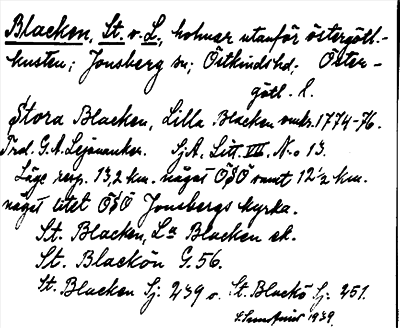 Blacken, St. o. L., holmar utanför östergötl.-
kusten; Jonsberg sn; Östkinds hd; Öster-
götl. l.
Stora Blacken, Lilla Blacken omkr. 1774-76.
Trol. G. A. Lejonanker. SjA, Litt. VII, No 13.
Läge resp. 13,2 km. något ÖSÖ samt 12 1/2 km.
något litet ÖSÖ Jonsbergs kyrka.
St. Blacken, La Blacken ek.
St. Blackön G. 56.
St. Blacken Sj. 239 o. St. Blackö Sj. 251.
1939.